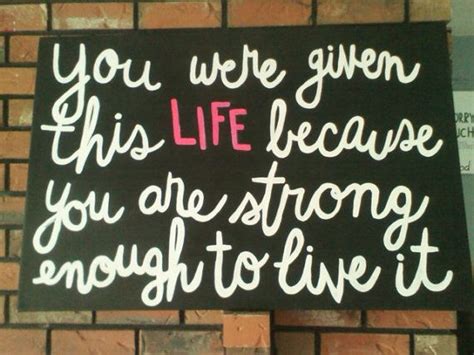 You were given
this LIFE because
you are strong
enough to live it
ORRY
UCH